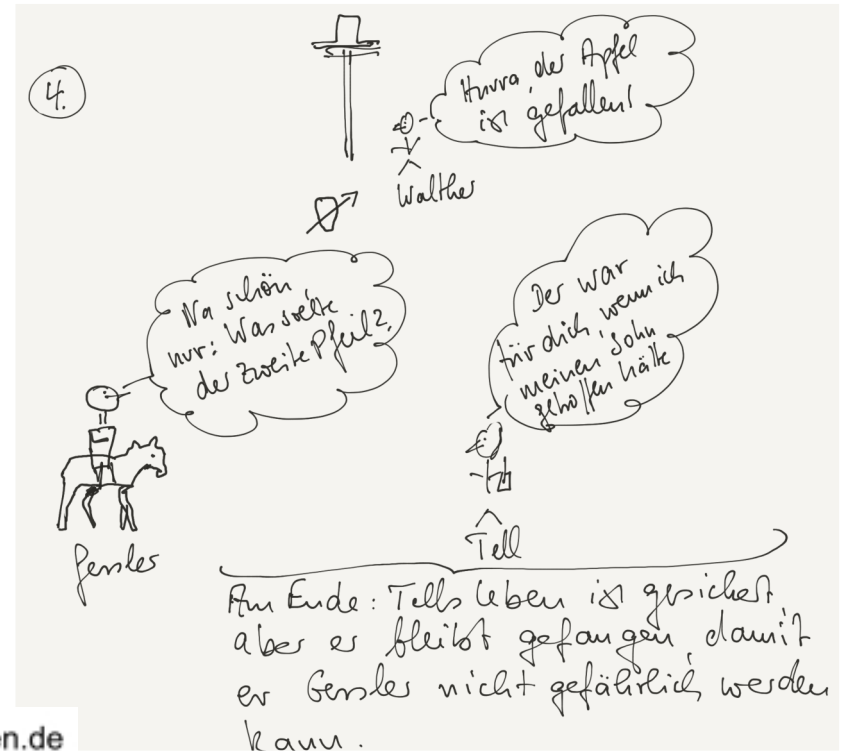 4.
Hurra, der Apfel
ist gefallen!
Walther
Na schön
nur: Was sollte
der zweite Pfeil?
Der war
für dich, wenn ich
meinen Sohn
getroffen hätte
Gessler
Tell
Am Ende: Tells Leben ist gesichert,
aber er bleibt gefangen, damit
er Gessler nicht gefährlich werden
kann.
en.de